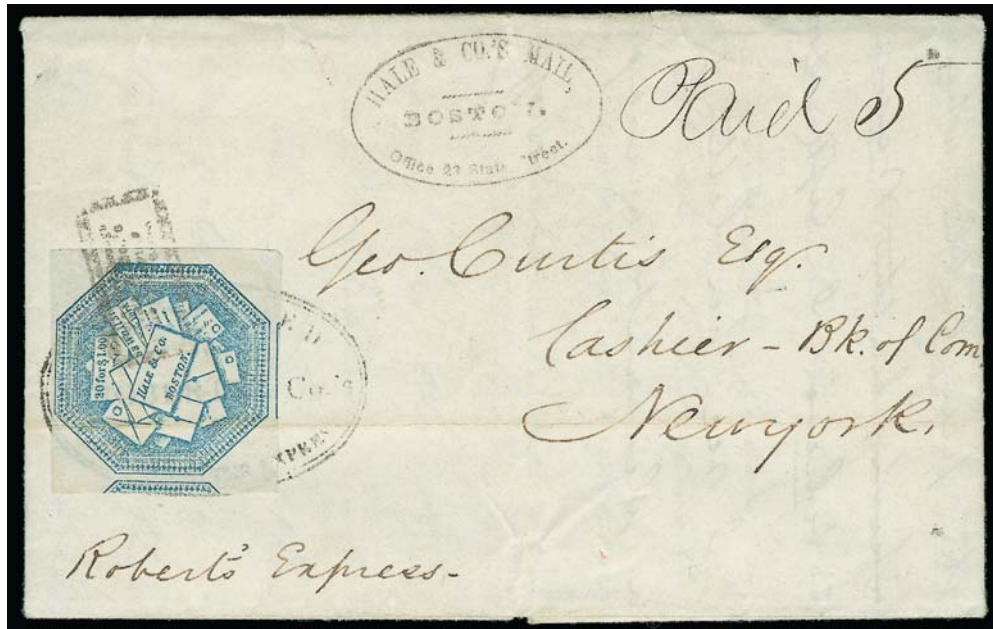 HALE & CO.'S MAIL,
BOSTON.
Office 23 State Street.
Paid 5
Geo. Curtis Esq.
Cashier - Bk. of Com
New york.
20 for $1.00
HALE & Co.
BOSTON.
Co.'s
EXPRES
Robert's Express-